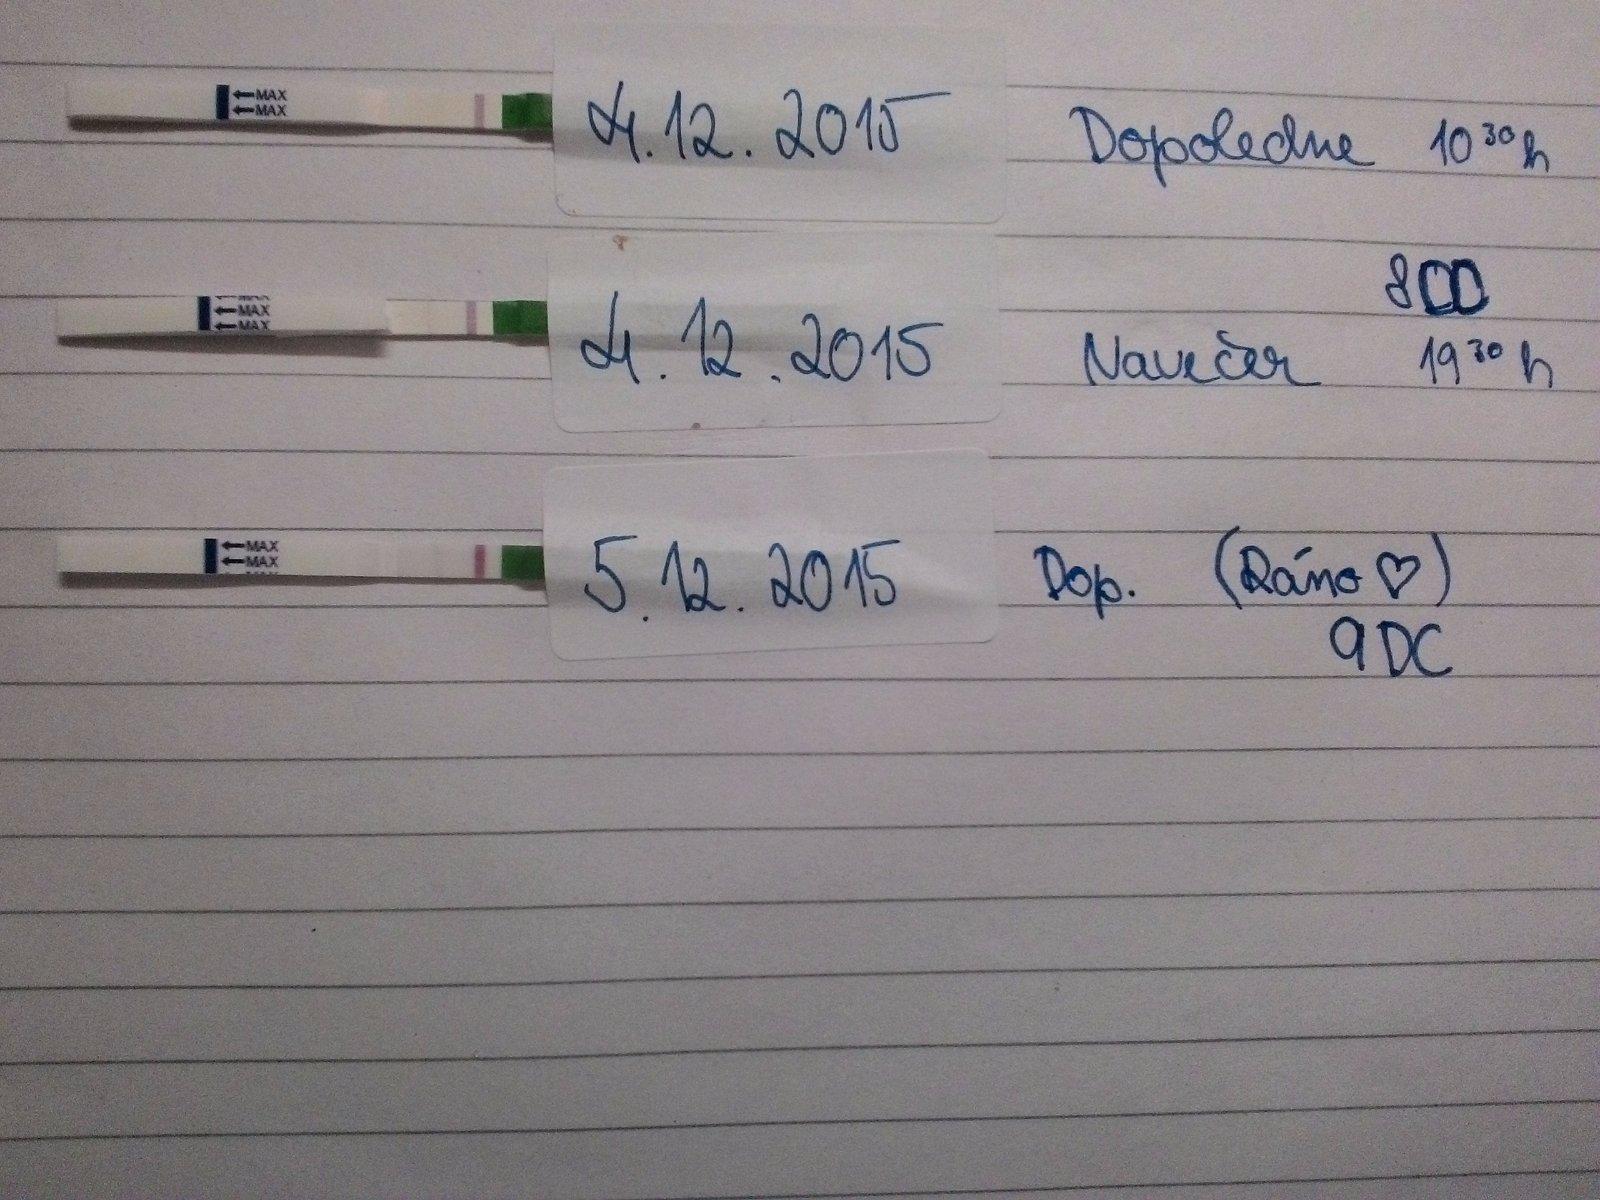 ←MAX
←MAX
4.12.2015 Dopoledne 10³⁰h
8DC
←MAX
←MAX
←MAX
4.12.2015 Navečer 19³⁰h
←MAX
←MAX
5.12.2015 Dop. (Ráno ♡)
9DC